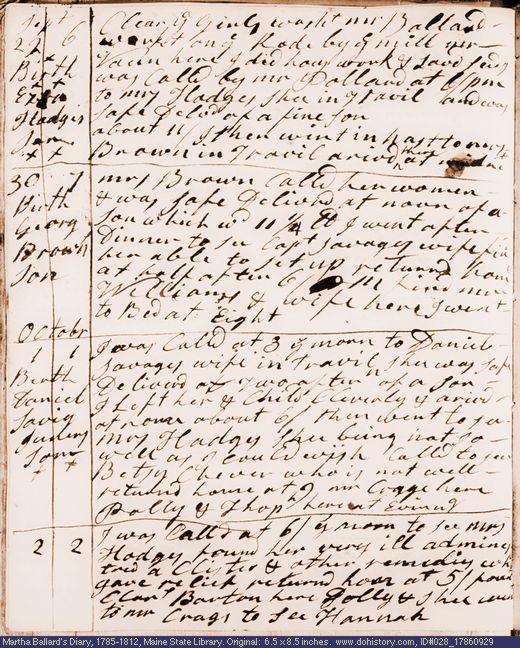 Sept Clear. ye Girls washt mr Ballard
29 6 workt on ye Rode by ye mill mr
Birth was calld by mr Ballard at 6/ pm
Extra to mrs Hodges shee in Travil and was
Hodges safe Deliv'd of a fine son
Son about 11/ I then went in hast to mrs
x x Brown in Travil arivd there at
30 7 mrs Brown Calld her women
Birth & was safe Deliverd at noon of a
Georg son which wd 11 1/4 lb I went after
Brown Dinner to see Capt Savages wife find
Son her able to set up returnd home
at half after 6 pm find mr
Williams & wife here I went
to Bed at Eight
Octobr
1 1 I was Calld at 3 ye morn to Daniel
Birth Savages wife in Travil shee was safe
Daniel Deliverd at Two aftern of a son
Savig I left her & Child Cleverly & arivd
at home about 6/ then went to see
Son mrs Hodges shee being not so
x x well as I could wish Calld to see
Betsy Chever who is not well
returnd home at 9 mr Cragge here
Polly & Thop here at Evinng
2 2 I was Calld at 6/ ye morn to see mrs
Hodges found her very ill adminis
tred a Clister & other remidies which
gave relief returnd hom at 5/
Clart Barton here Polly & shee went
to mr Crags to See Hannah
Martha Ballard's Diary, 1785-1812, Maine State Library. Original: 6.5 x 8.5 inches. www.dohistory.com, ID#028_17860929